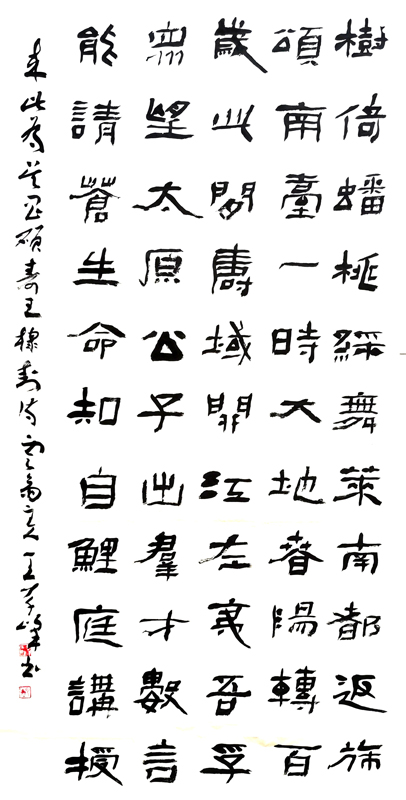 樹倚蟠桃綵舞萊南都返旆
頌南臺一時大地春陽轉百
歲此間壽域開江左夷吾孚
衆望太原公子出羣才數言
能請蒼生命知自鯉庭講授
来此為吴昌碩壽王